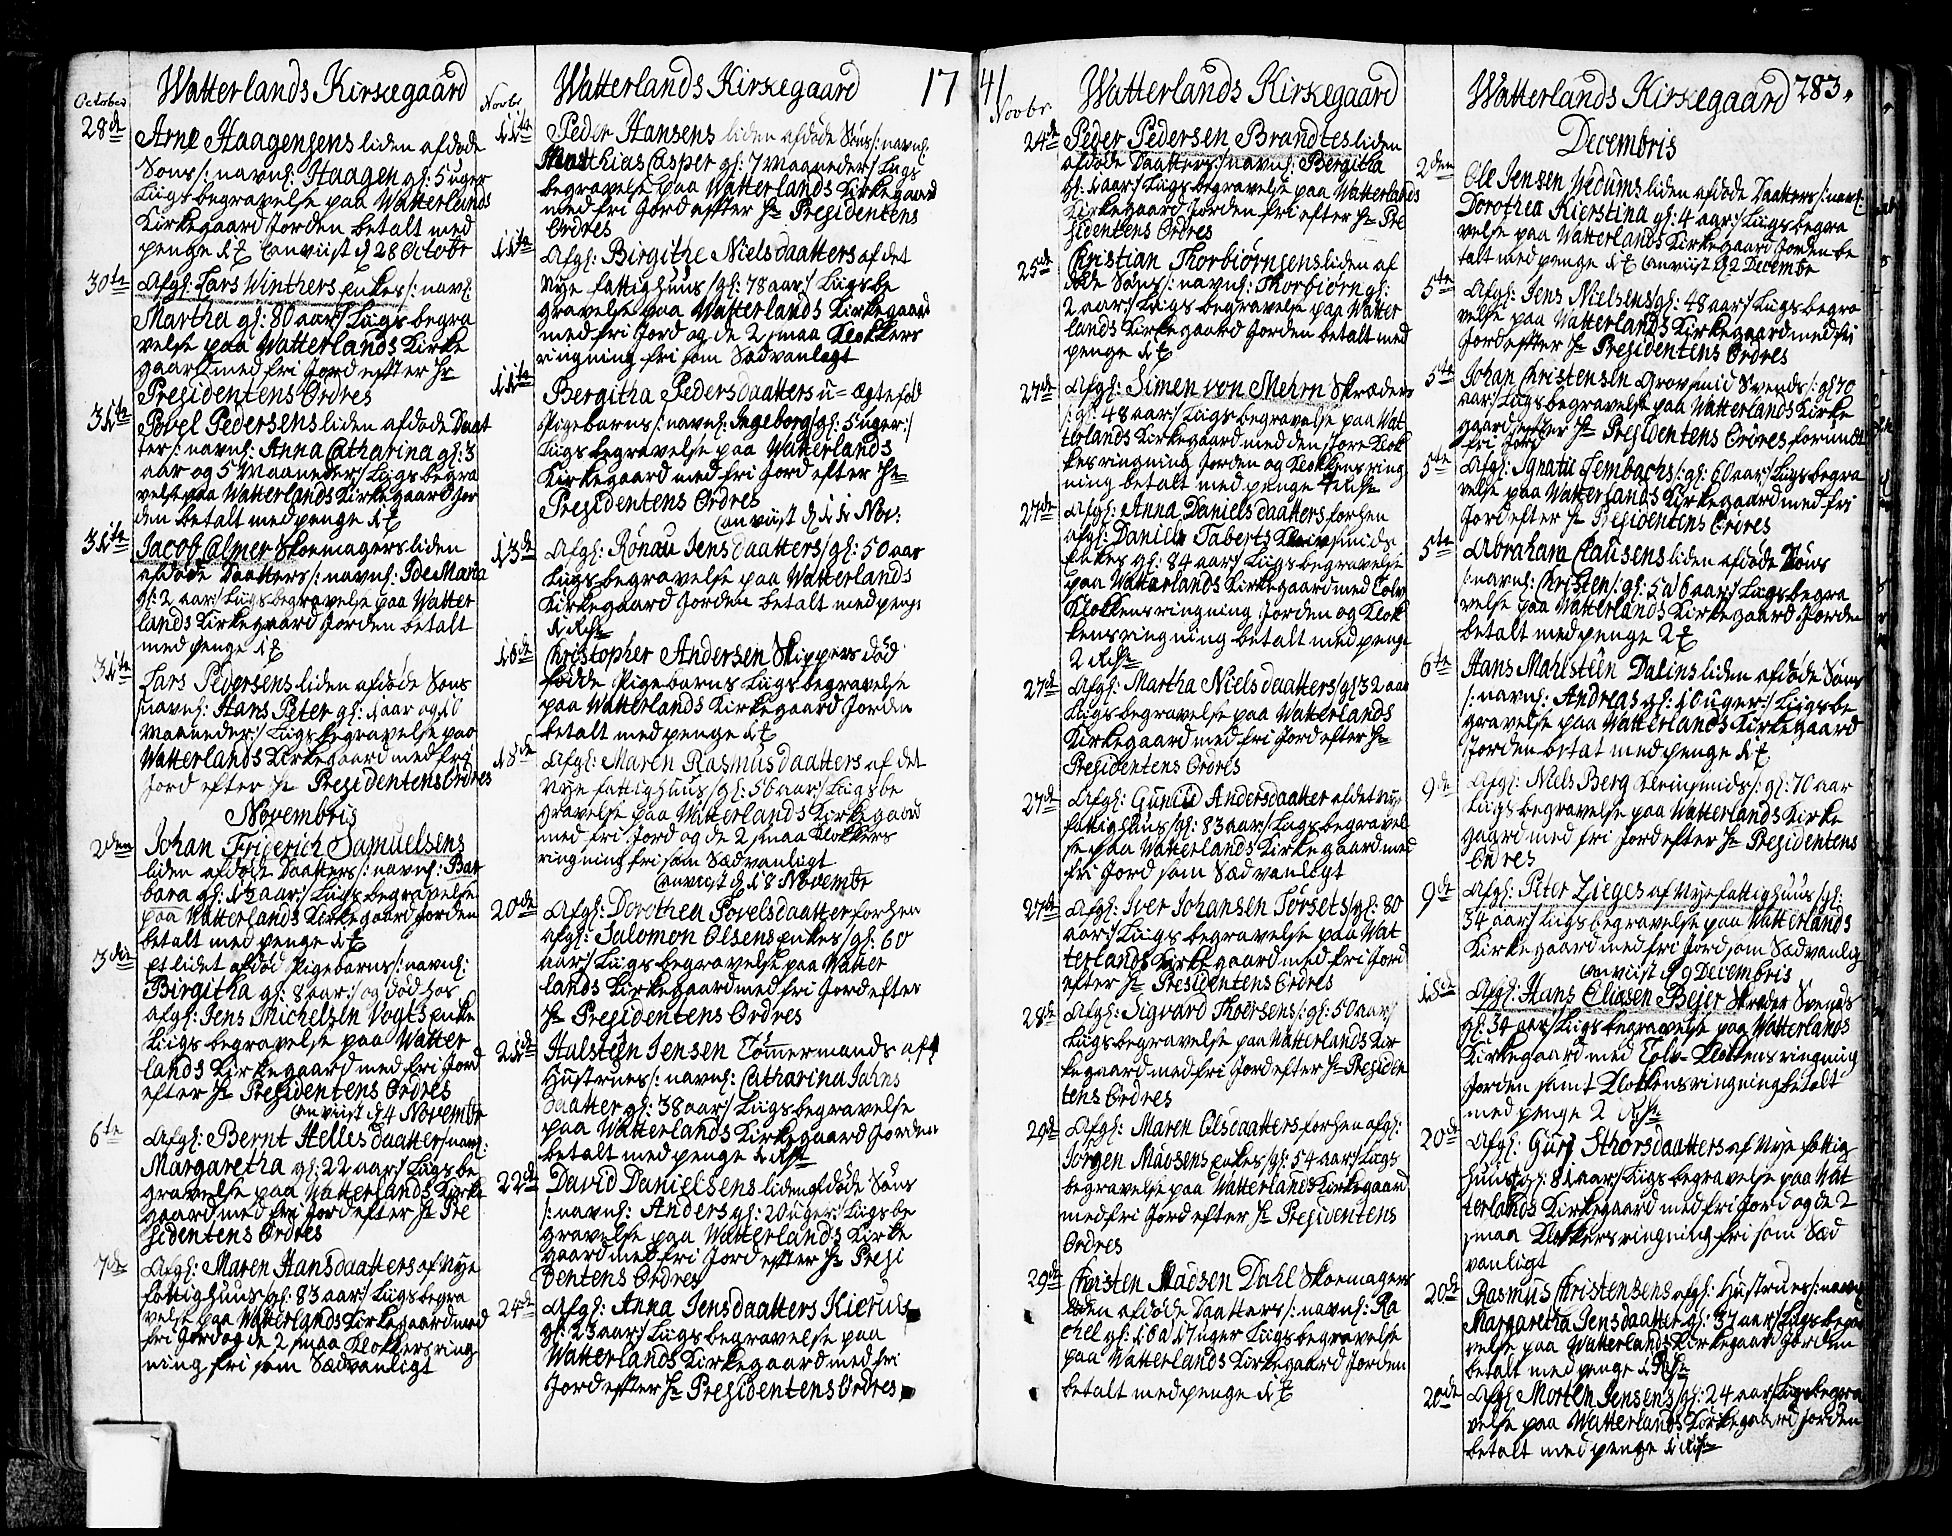 Watterlands Kirkegaard
October
28de Arne Haagensens liden afdøde
Søns/: navnl: Haagen gl: 5 uger
Liigs begravelse paa Watterlands
Kirkegaard Jorden betalt med
penge 1 ʒ Anviist d 28 Octobr
30te Afgl: Lars Winthers Enkes/: navnl:
Martha gl: 80 aar:/ Liigs begra
velse paa Watterlands Kirke
gaard med fri Jord effter Hr
Presidentens Ordres
31te Povel Pedersens liden afdøde Daat
ters/: navnl: Anna Catharina gl: 3
aar og 5 Maaneder:/ Liigs begra
velse paa Watterlands Kirkegaard Jor
den betalt med penge 1 ʒ
31te Jacob Calmer Skoemagers liden
afdøde Daatters/: navnl: Ide Maria
gl: 2 aar:/ Liigs begravelse paa Watter
lands Kirkegaard Jorden betalt
med penge 1 ʒ
31te Lars Pedersens liden afdøde Søns
/:navnl: Hans Peter gl: 1 aar og 10
Maaneder:/ Liigs begravelse paa
Watterlands Kirkegaard med fri
Jord efter Hr Presidentens Ordres
Novembris
2den Johan Friderich Samuelsens
liden afdøde Daatters/: navnl: Bar
bara gl: 1½ aar:/ Liigs begravelse
paa Watterlands Kirkegaard Jorden
betalt med penge 1 ʒ
3die Et lidet afdød Pigebarns/: navnl:
Birgitha gl: 8 aar:/ og død hos
afgl: Jens Michelsen Vogts Enke
Liigs begravelse paa Watter
lands Kirkegaard med fri Jord
efter Hr Presidentens Ordres
Anviist d 4 Novembr
6te Afgl: Bernt Helles daatter/navnl:
Margaretha gl: 22 aar:/ Liigs be
gravelse paa Watterlands Kirke
gaard med fri Jord efter Hr Pre
sidentens Ordres
7de Afgl: Maren Hansdaatters af Nye
fattighuus/gl: 83 aar:/ Liigs begra
velse paa Watterlands Kirkegaard med
fri Jord og de 2 smaa Klokkers ring
ning fri som Sædvanligt
Watterlands Kirkegaard 17
Novbr
11te Peder Hansens liden afdøde Søns/: navnl:
Matthias Casper gl: 7 Maaneder/ Liigs
begravelse paa Watterlands Kirkegaard
med fri Jord effter Hr Presidentens
Ordres
11te Afgl: Birgithe Nielsdaatters af det
Nye fattighuus /gl: 78 aar:/ Liigs be
gravelse paa Watterlands Kirkegaard
med fri Jord og de 2 smaa Klokkers
ringning fri som Sædvanlgt
11te Bergitha Pedersdaatters u=ægtefød
Pigebarns/: navnl: Ingeborg/gl: 5 uger:/
Liigs begravelse paa Watterlands
Kirkegaard med fri Jord efter Hr
Presidentens Ordres
Anviist d 11 Nov:
13de Afgl: Rønau Jensdaatters/gl: 50 aar
Liigs begravelse paa Watterlands
Kirkegaard Jorden betalt med penge
1 Rdr
16de Christopher Andersen Skippers død
fødde Pigebarns Liigs begravelse
paa Watterlands Kirkegaard Jorden
betalt med penge 1 ʒ
18de Afgl: Maren Rasmusdaatters af det
Nye fattighuus /gl: 56 aar:/ Liigs be
gravelse paa Watterlands Kirkegaard
med fri Jord og de 2 smaa Klokkers
ringning fri som Sædvanligt
Anviist d 18 Novembr
20de Afgl: Dorothea Povelsdaatter forhen
afgl: Salomon Olsens Enkes/gl: 60
aar:/ Liigs begravelse paa Watter
lands Kirkegaard med fri Jord efter
Hr Presidentens Ordres
21de Halsteen Jensen Tømmermands afgl
Hustrues/: navnl: Catharina Jahns
daatter gl: 38 aar:/ Liigs begravelse
paa Watterlands Kirkegaard Jorden
betalt med penge 1 Rdr
22de David Danielsens liden afdøde Søns
/: navnl: Anders gl: 20 uger:/ Liigs be
gravelse paa Watterlands Kirke
gaard med fri Jord effter Hr Presi
dentens Ordres
24de Afgl: Anna Jensdaatters Kierues
gl: 23 aar:/ Liigs begravelse paa
Watterlands Kirkegaard med fri
Jord effter Hr Presidentens Ordres
41 Watterlands Kirkegaard
Novbr
24de Peder Pedersen Brandtes liden
afdøde Daatters/: navnl: Bergitha
gl: 1 aar:/ Liigs begravelse paa Watterlands
Kirkegaard Jorden fri efter Hr Pre
sidentens Ordres
25de Christian Thorbiørnsens liden af
døde Søns/: navnl: Thorbiørn gl:
2 aar:/ Liigs begravelse paa Watter
lands Kirkegaard Jorden betalt med
penge 1 ʒ
27de Afgl: Simen von Mehrn Skræders
/: gl: 48 aar:/ Liigs begravelse paa Wat
terlands Kirkegaard med den store Klok
kes ringning Jorden og Klokkens ring
ning betalt med penge 4 Rdr
27de Afgl: Anna Danielsdaatters forhen
afgl: Daniels Taberts Kleinsmids
Enkes gl: 84 aar:/ Liigs begravelse
paa Watterlands Kirkegaard med Tolv
Klokkens ringning Jorden og Klok
kens ringning betalt med penge
2 Rdr
27de Afgl: Martha Nielsdaatters/gl 32 aar
Liigs begravelse paa Watterlands
Kirkegaard med fri Jord efter Hr
Presidentens Ordres
27de Afgl: Gunild Andersdaatter af det Nye
fattighuus /gl: 83 aar:/ Liigs begravel
se paa Watterlands Kirkegaard med
fri Jord som Sædvanligt
27de Afgl: Iver Johansen Tørsets/gl: 80
aar:/ Liigs begravelse paa Wat
terlands Kirkegaard med fri Jord
efter Hr Presidentens Ordres
28de Afgl: Sigvard Thoersens/: gl: 50 aar/
Liigs begravelse paa Watterlands Kir
kegaard med fri Jord efter Hr Presiden
tens Ordres
29de Afgl: Maren Olsdaatters forhen afgl:
Jørgen Madsens Enkes/gl: 54 aar:/ Liigs
begravelse paa Watterlands Kirkegaard
med fri Jord efter Hr Presidentens
Ordres
29de Christen Madsen Dahl Skoemagers
liden afdøde Daatters/: navnl: Ra
chel gl: 16 a 17 uger Liigs begravelse
paa Watterlands Kirkegaard Jorden
betalt med penge 1 ʒ
Watterlands Kirkegaard 283.
Decembris
2den Ole Jensen Wedums liden afdøde Daatters/: navnl:
Dorothea Kierstina gl: 4 aar:/ Liigs begra
velse paa Watterlands Kirkegaard Jorden be
talt med penge 1 ʒ Anviist d 2 Decembr
5te Afgl: Jens Nielsens/gl: 48 aar:/ Liigs begra
velse paa Watterlands Kirkegaard med fri
Jord efter Hr Presidentens Ordres
5te Johan Christensen Grovsmid Svends/: gl 70
aar:/ Liigs begravelse paa Watterlands Kirke
gaard efter Hr Presidentens Ordres formedelst
fri Jord
5te Afgl: Ignatii Lembachs/: gl: 60 aar/ Liigs begra
velse paa Watterlands Kirkegaard med fri
Jord efter Hr Presidentens Ordres
5te Abraham Clausens liden afdøde Søns
/: navnl: Christen/gl: 5 a 6 aar:/ Liigs begra
velse paa Watterlands Kirkegaard Jorden
betalt med penge 2 ʒ
6te Hans Mahlsteen Dalins liden afdøde Søns
/: navnl: Andreas gl: 16 uger:/ Liigs be
gravelse paa Watterlands Kirkegaard
Jorden betalt med penge 1 ʒ
9de Afgl: Niels Berg Kleinsmids/: gl: 70 aar
Liigs begravelse paa Watterlands Kirke
gaard med fri Jord efter Hr Presidentens
Ordres
9de Afgl: Peter Zieges af Nye fattighuus/gl:
34 aar:/ Liigs begravelse paa Watterlands
Kirkegaard med fri Jord som Sædvanlig
Anviist d 9 Decembris
15de Afgl: Hans Eliasen Bejer Skræder Svends
gl: 34 aar:/ Liigs begravelse paa Watterlands
Kirkegaard med Tolv Klokkens ringning
Jorden samt Klokkens ringning betalt
med penge 2 Rdr
20de Afgl: Gurj Sthorsdaatters af Nye fattig
huus/gl: 81 aar:/ Liigs begravelse paa Wat
terlands Kirkegaard med fri Jord og de 2
smaa Klokkers ringning fri som Sæd
vanligt
20de Rasmus Christensens afgl: Hustrues/: navnl:
Margaretha Jensdaatter gl: 37 aar:/ Liigs begra
velse paa Watterlands Kirkegaard Jorden
betalt med penge 1 Rdr
20de Afgl Morten Jensens/gl: 24 aar:/ Liigs begra
velse paa Watterlands Kirkegaard Jorden
betalt med penge 1 Rdr